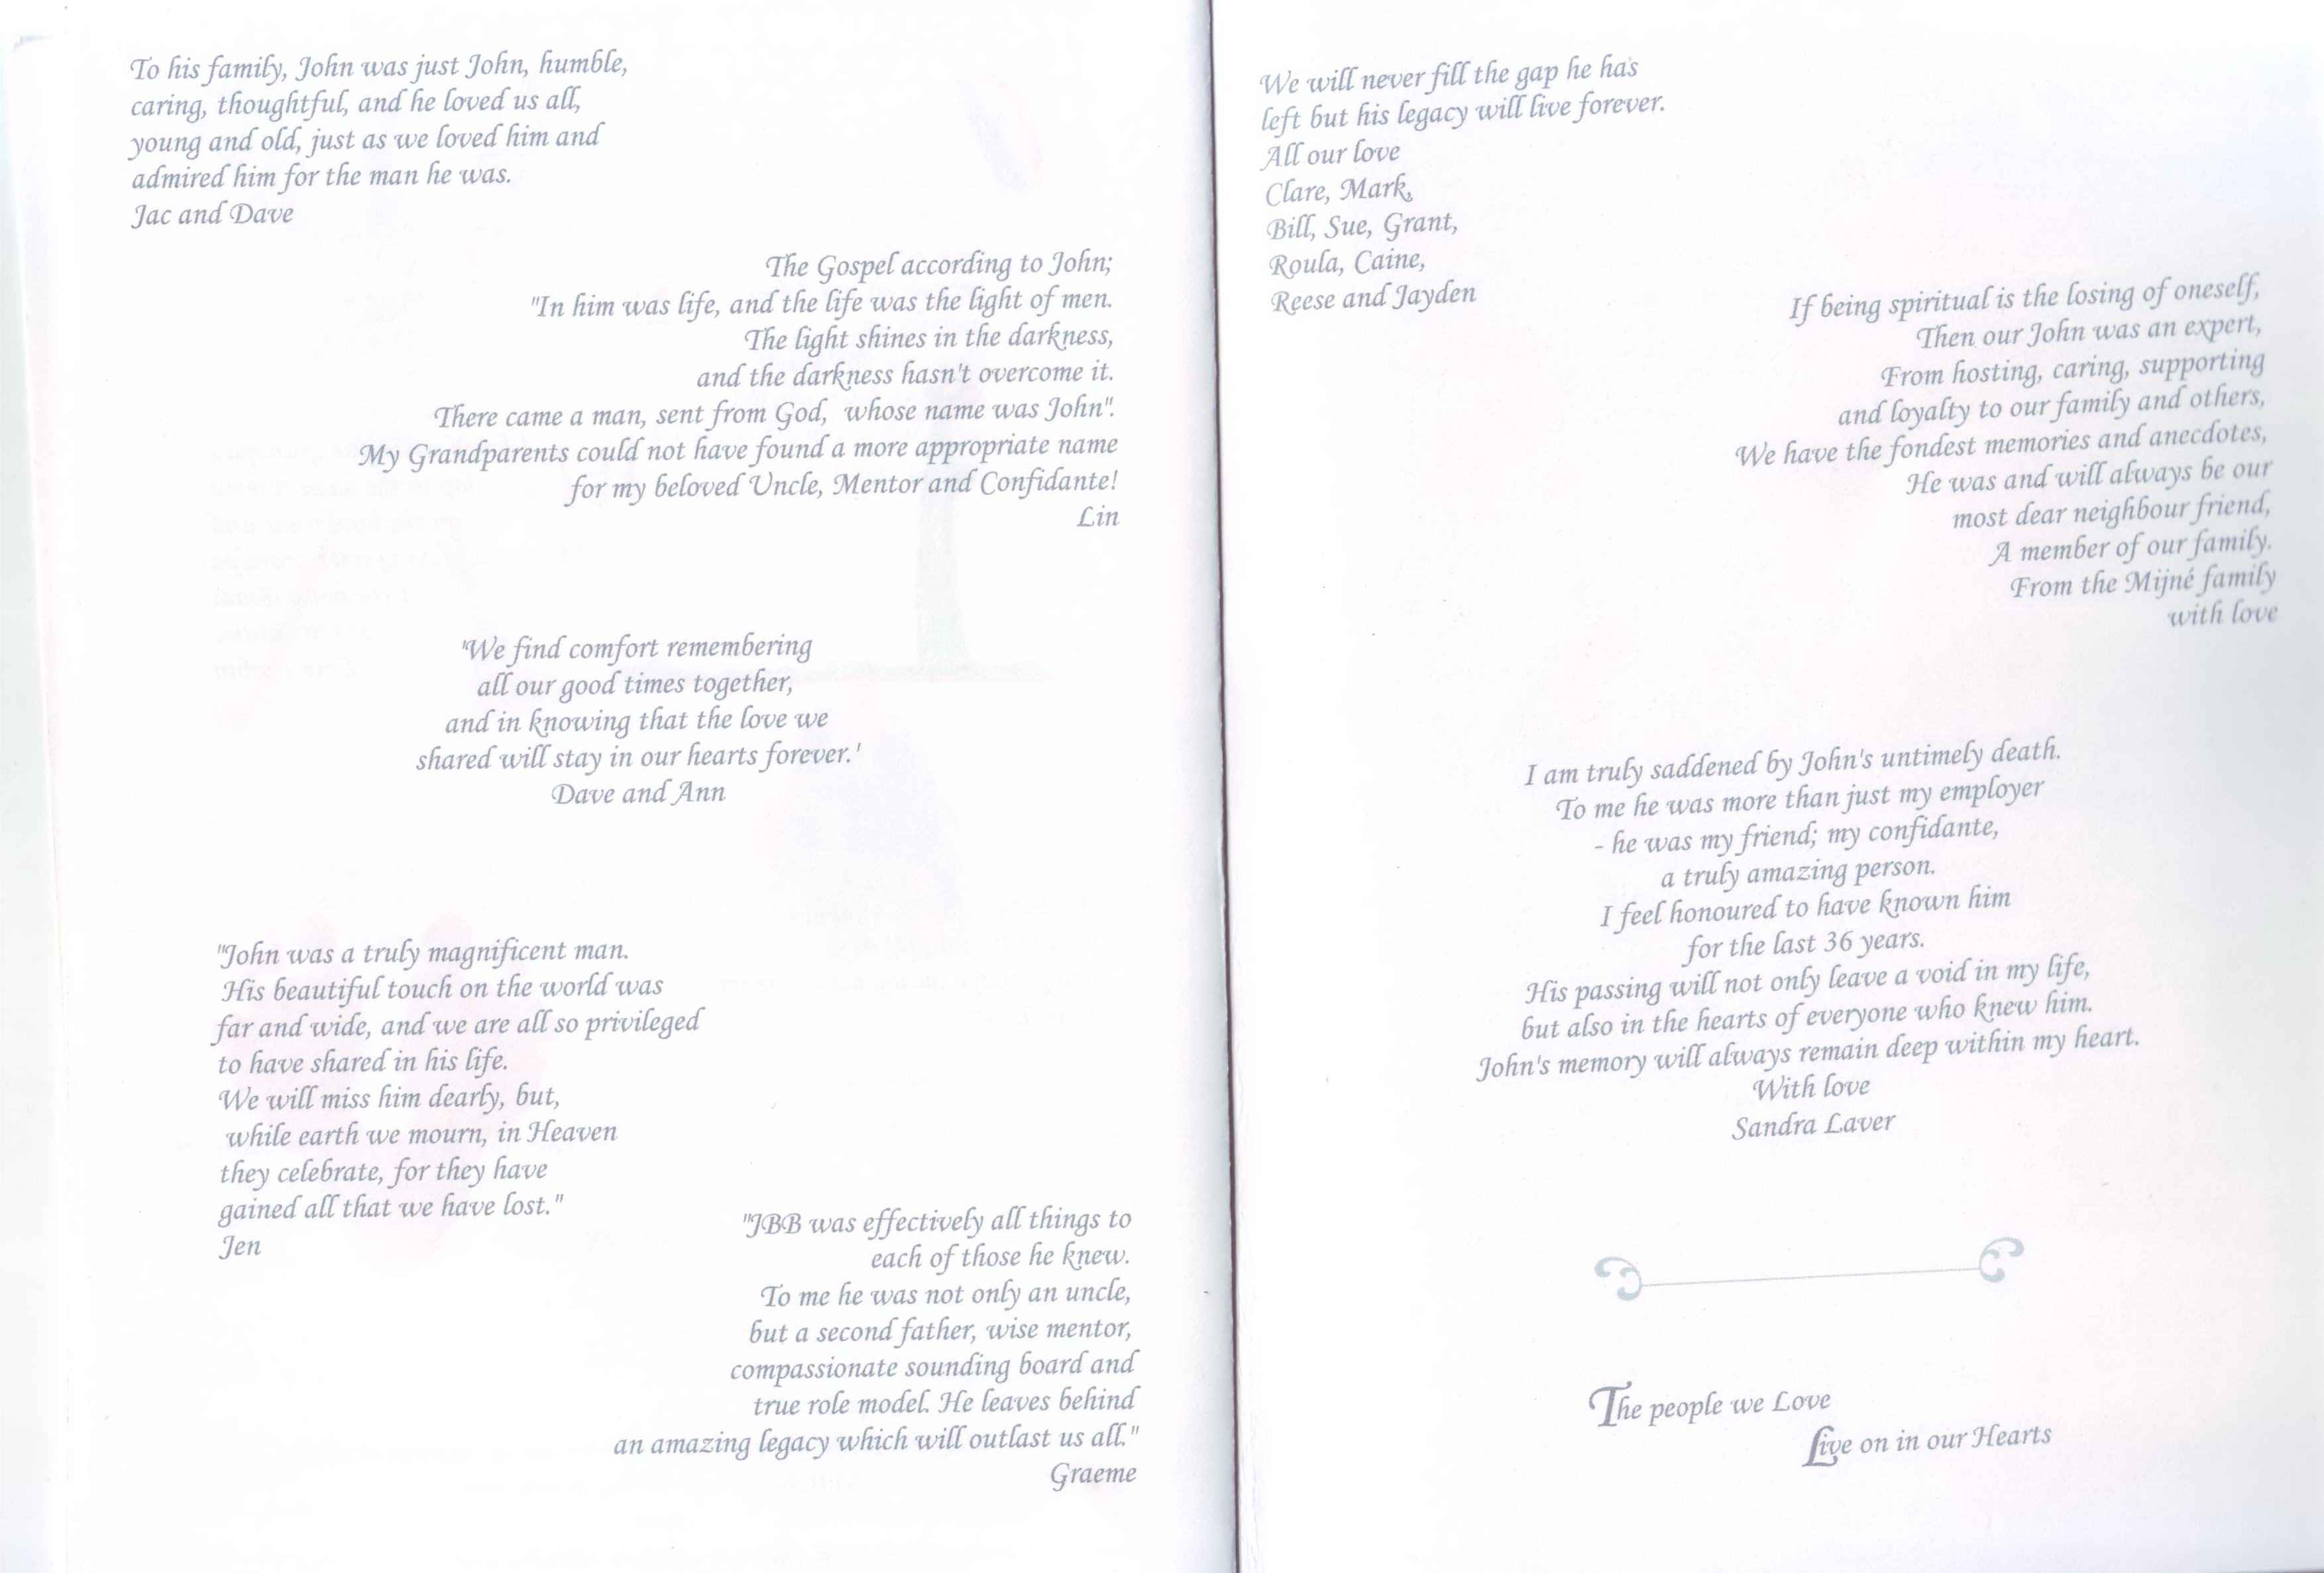 To his family, John was just John, humble,
caring, thoughtful, and he loved us all,
young and old, just as we loved him and
admired him for the man he was.
Jac and Dave
The Gospel according to John;
"In him was life, and the life was the light of men.
The light shines in the darkness,
and the darkness hasn't overcome it.
There came a man, sent from God, whose name was John".
My Grandparents could not have found a more appropriate name
for my beloved Uncle, Mentor and Confidante!
Lin
'We find comfort remembering
all our good times together,
and in knowing that the love we
shared will stay in our hearts forever.'
Dave and Ann
"John was a truly magnificent man.
His beautiful touch on the world was
far and wide, and we are all so privileged
to have shared in his life.
We will miss him dearly, but,
while earth we mourn, in Heaven
they celebrate, for they have
gained all that we have lost."
Jen
"JBB was effectively all things to
each of those he knew.
To me he was not only an uncle,
but a second father, wise mentor,
compassionate sounding board and
true role model. He leaves behind
an amazing legacy which will outlast us all."
Graeme
We will never fill the gap he has
left but his legacy will live forever.
All our love
Clare, Mark,
Bill, Sue, Grant,
Roula, Caine,
Reese and Jayden
If being spiritual is the losing of oneself,
Then our John was an expert,
From hosting, caring, supporting
and loyalty to our family and others,
We have the fondest memories and anecdotes,
He was and will always be our
most dear neighbour friend,
A member of our family.
From the Mijné family
with love
I am truly saddened by John's untimely death.
To me he was more than just my employer
- he was my friend; my confidante,
a truly amazing person.
I feel honoured to have known him
for the last 36 years.
His passing will not only leave a void in my life,
but also in the hearts of everyone who knew him.
John's memory will always remain deep within my heart.
With love
Sandra Laver
The people we Love
Live on in our Hearts